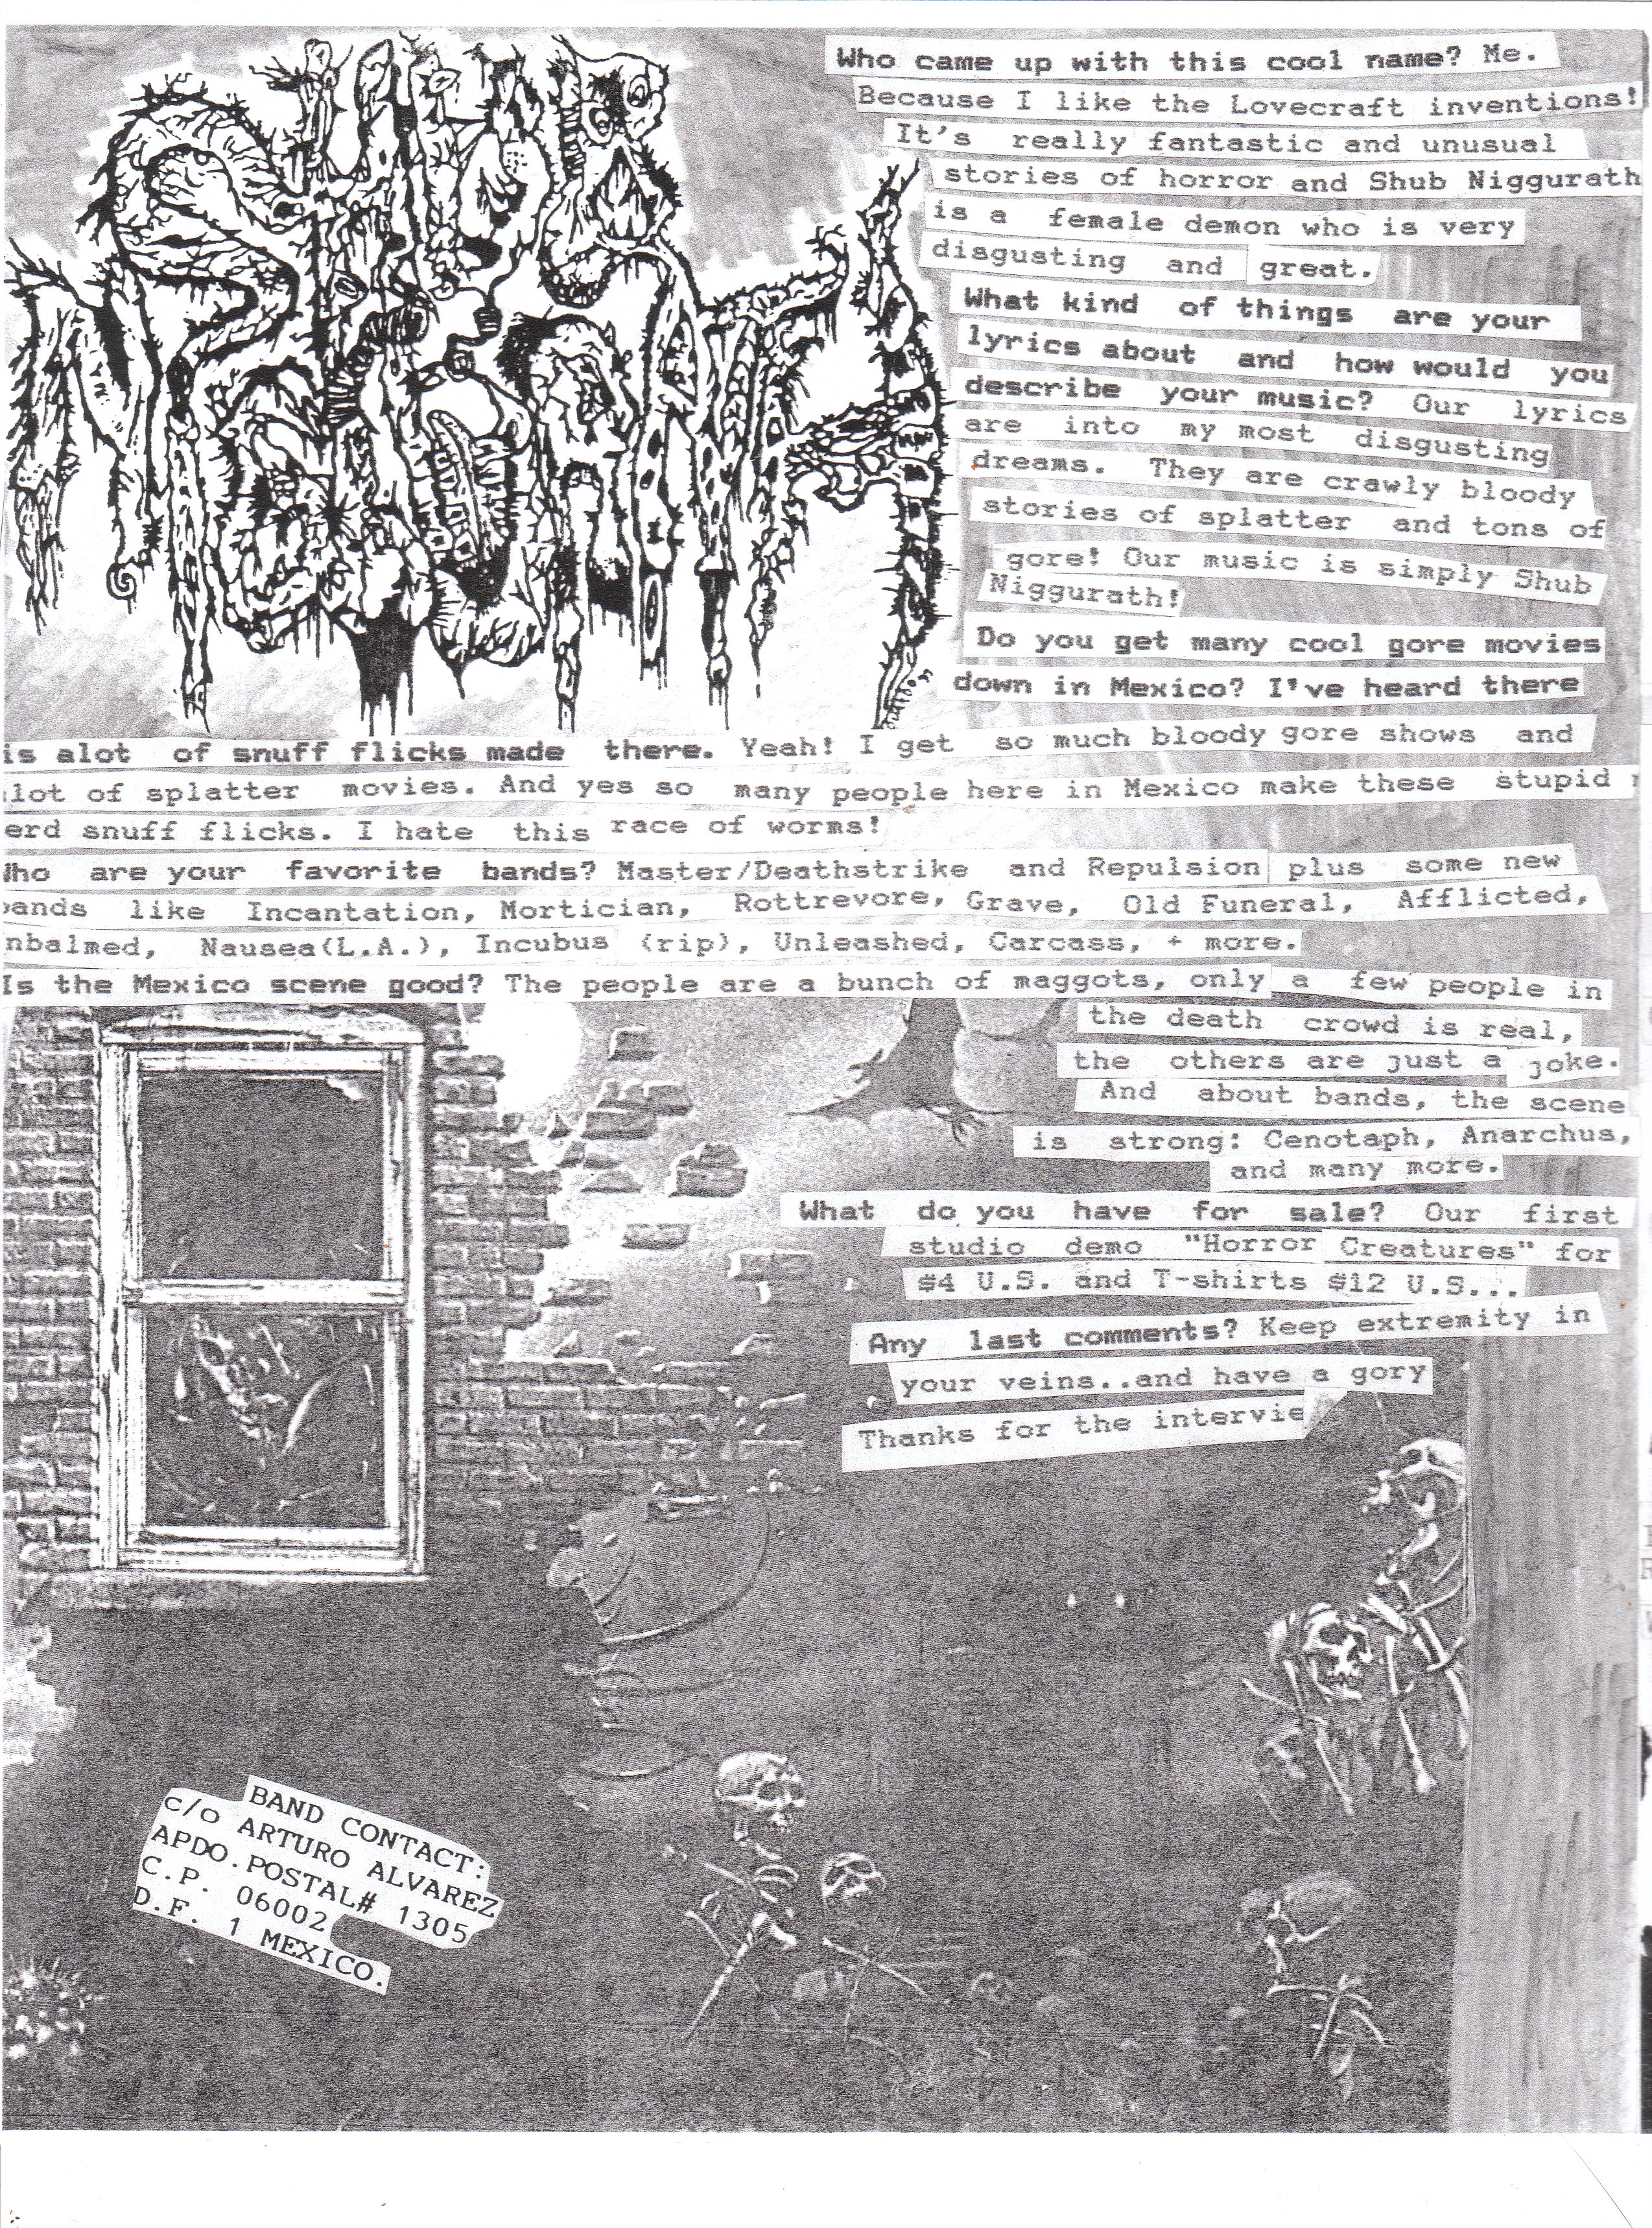 Who came up with this cool name? Me.
Because I like the Lovecraft inventions!
It's really fantastic and unusual
stories of horror and Shub Niggurath
is a female demon who is very
disgusting and great.
What kind of things are your
lyrics about and how would you
describe your music? Our lyrics
are into my most disgusting
dreams. They are crawly bloody
stories of splatter and tons of
gore! Our music is simply Shub
Niggurath!
Do you get many cool gore movies
down in Mexico? I've heard there
is alot of snuff flicks made there. Yeah! I get so much bloody gore shows and
lot of splatter movies. And yes so many people here in Mexico make these stupid
erd snuff flicks. I hate this race of worms!
Who are your favorite bands? Master/Deathstrike and Repulsion plus some new
bands like Incantation, Mortician, Rottrevore, Grave, Old Funeral, Afflicted,
nbalmed, Nausea(L.A.), Incubus (rip), Unleashed, Carcass, + more.
Is the Mexico scene good? The people are a bunch of maggots, only a few people in
the death crowd is real,
the others are just a joke.
And about bands, the scene
is strong: Cenotaph, Anarchus,
and many more.
What do you have for sale? Our first
studio demo "Horror Creatures" for
$4 U.S. and T-shirts $12 U.S...
Any last comments? Keep extremity in
your veins..and have a gory
Thanks for the intervie
BAND CONTACT:
c/o ARTURO ALVAREZ
APDO.POSTAL# 1305
C.P. 06002
D.F. 1 MEXICO.